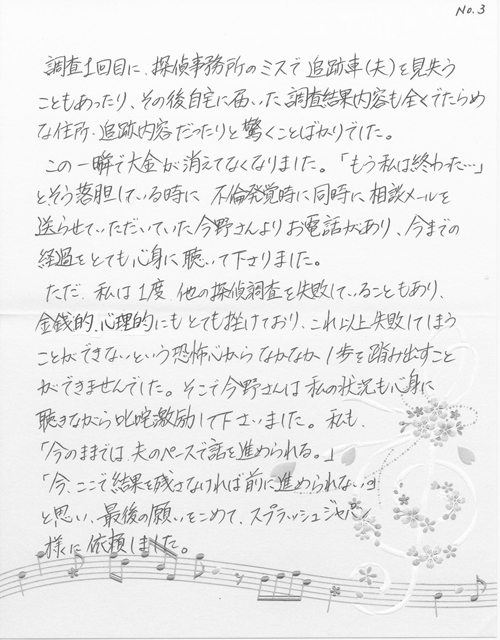 No.3
調査1回目に、探偵事務所のミスで追跡車(夫)を見失う
こともあったり、その後自宅に届いた調査結果内容も全くでたらめ
な住所・追跡内容だったりと驚くことばかりでした。
この一瞬で大金が消えてなくなりました。「もう私は終わった…」
とそう落胆している時に 不倫発覚時に同時に相談メールを
送らせていただいていた今野さんよりお電話があり、今までの
経過をとても心身に聴いて下さりました。
ただ、私は1度、他の探偵調査を失敗していることもあり、
金銭的、心理的にもとても挫けており、これ以上失敗してしまう
ことができないという恐怖心からなかなか1歩を踏み出すこと
ができませんでした。そこで今野さんは私の状況も心身に
聴きながら叱咤激励して下さいました。私も、
「今のままでは、夫のペースで話を進められる。」
「今、ここで結果を残さなければ前に進められない。」
と思い、最後の願いをこめて、スプラッシュジャパン
様に依頼しました。